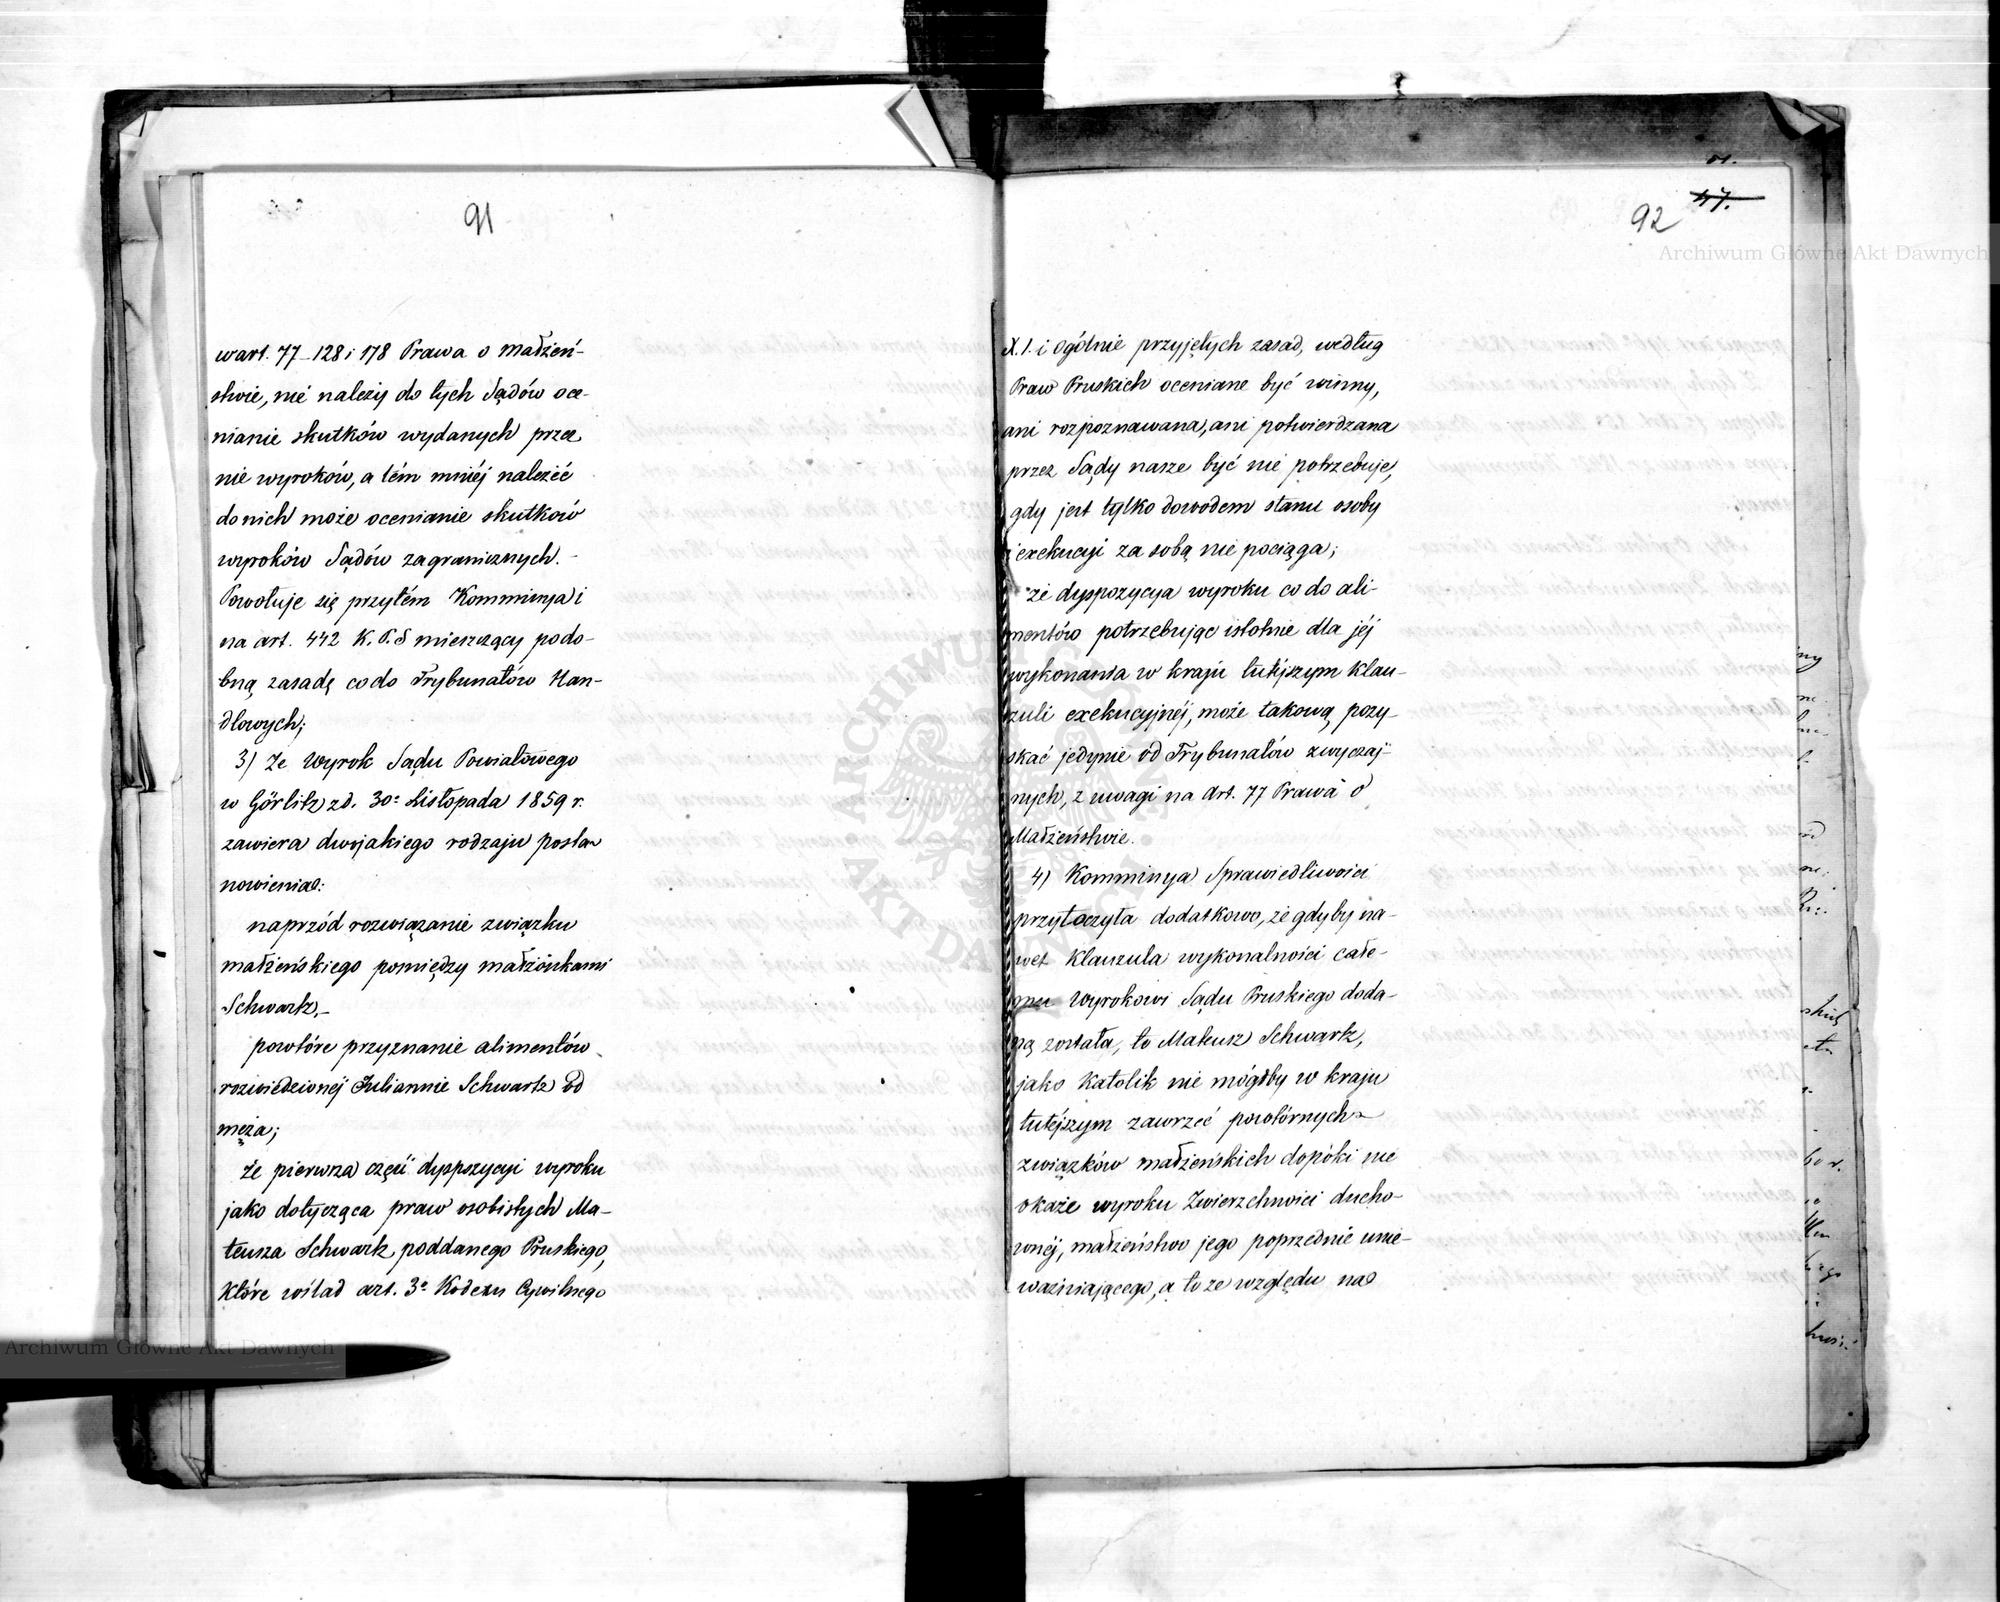 91
w art. 77 – 128 i 178 Prawa o Małżeń-
stwie, nie należy do tych Sądów oce-
nianie skutków wydanych przez
nie wyroków, a tém mniéj należéć
do nich może ocenianie skutków
wyroków Sądów zagranicznych. –
Powołuje się przytém Kommissya i
na art. 442 K. P. S mieszczący podo-
bną zasadę co do Trybunałów Han-
dlowych;
3) Że Wyrok Sądu Powiatowego
w Görlitz z d. 30º Listopada 1859 r.
zawiera dwojakiego rodzaju posta-
nowienia:
naprzód rozwiązanie związku
małżeńskiego pomiędzy małżonkami
Schwartz, –
powtóre przyznanie alimentów
rozwiedzionéj Juliannie Schwartz od
męża;
że pierwsza część dyspozycyi wyroku
jako dotycząca praw osobistych Ma-
teusza Schwartz, poddanego Pruskiego,
które wślad art. 3º Kodexu Cywilnego
01.
47.
92
X. I. i ogólnie przyjętych zasad, według
Praw Pruskich oceniane być winny,
ani rozpoznawana, ani potwierdzana
przez Sądy nasze być nie potrzebuje,
gdy jest tylko dowodem stanu osoby
i exekucyi za sobą nie pociąga;
że dyspozycya wyroku co do ali-
mentów potrzebując istotnie dla jéj
wykonania w kraju tutéjszym klau-
zuli exekucyjnéj, może takową pozy-
skać jedynie od Trybunałów zwyczaj-
nych, z uwagi na art. 77 Prawa o
Małżeństwie.
4) Kommissya Sprawiedliwości
przytoczyła dodatkowo, że gdyby na-
wet klauzula wykonalności całe-
mu Wyrokowi Sądu Pruskiego doda-
ną została, to Mateusz Schwartz,
jako Katolik nie mógłby w kraju
tutéjszym zawrzeć powtórnych
związków małżeńskich dopóki nie
okaże wyroku Zwierzchności ducho-
wnéj, małżeństwo jego poprzednie unie-
ważniającego, a to ze względu na
Archiwum Główne Akt Dawnych
Archiwum Główne Akt Dawnych
ARCHIWUM GŁÓWNE AKT DAWNYCH